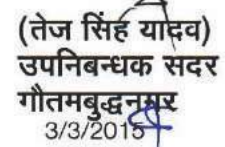 (तेज सिंह यादव)
उपनिबन्धक सदर
गौतमबुद्धनगर
3/3/2015